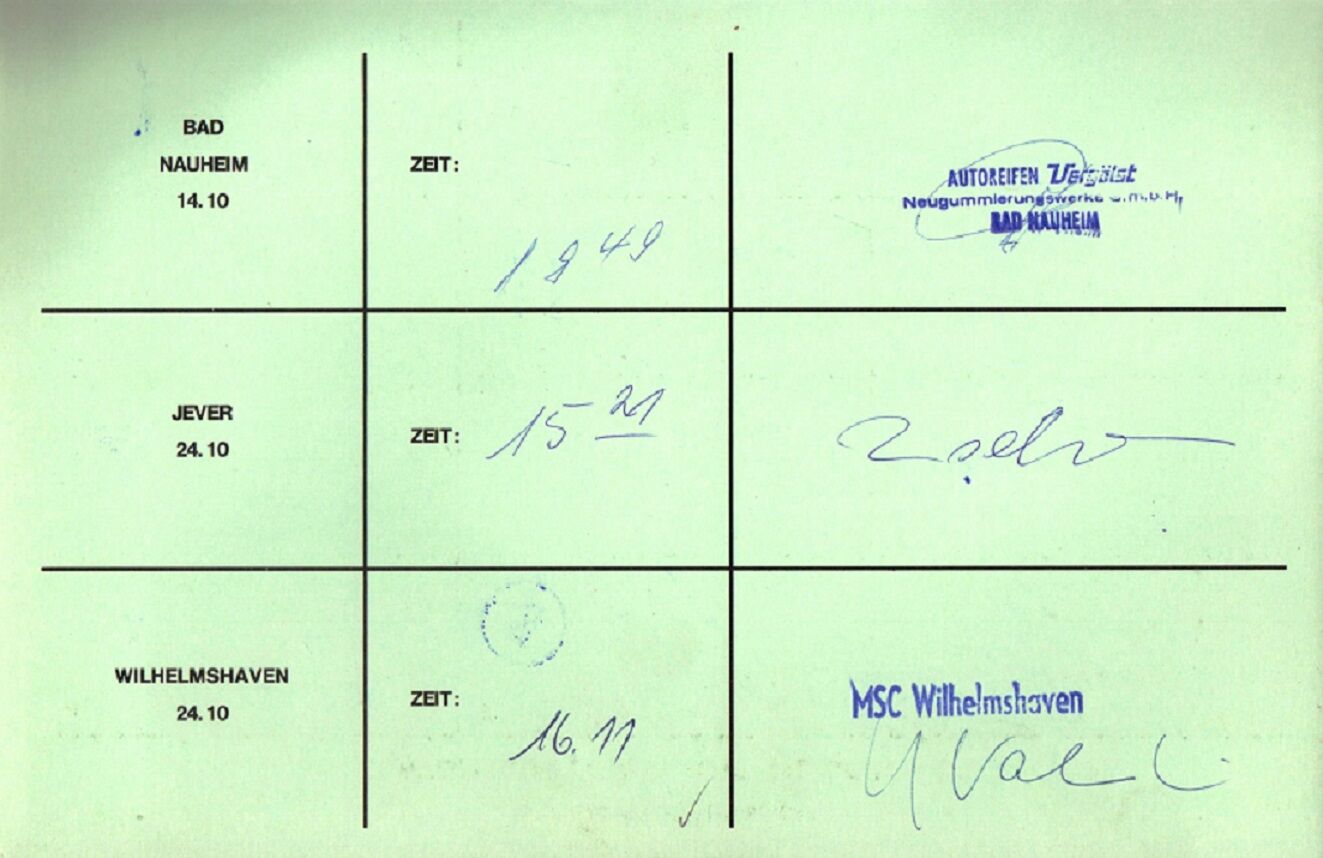 BAD
NAUHEIM
14.10
ZEIT:
18 49
AUTOREIFEN Vergölst
Neugummierungswerke G.m.b.H.
BAD NAUHEIM
JEVER
24.10
ZEIT: 15 21
WILHELMSHAVEN
24.10
ZEIT:
16.11
MSC Wilhelmshaven